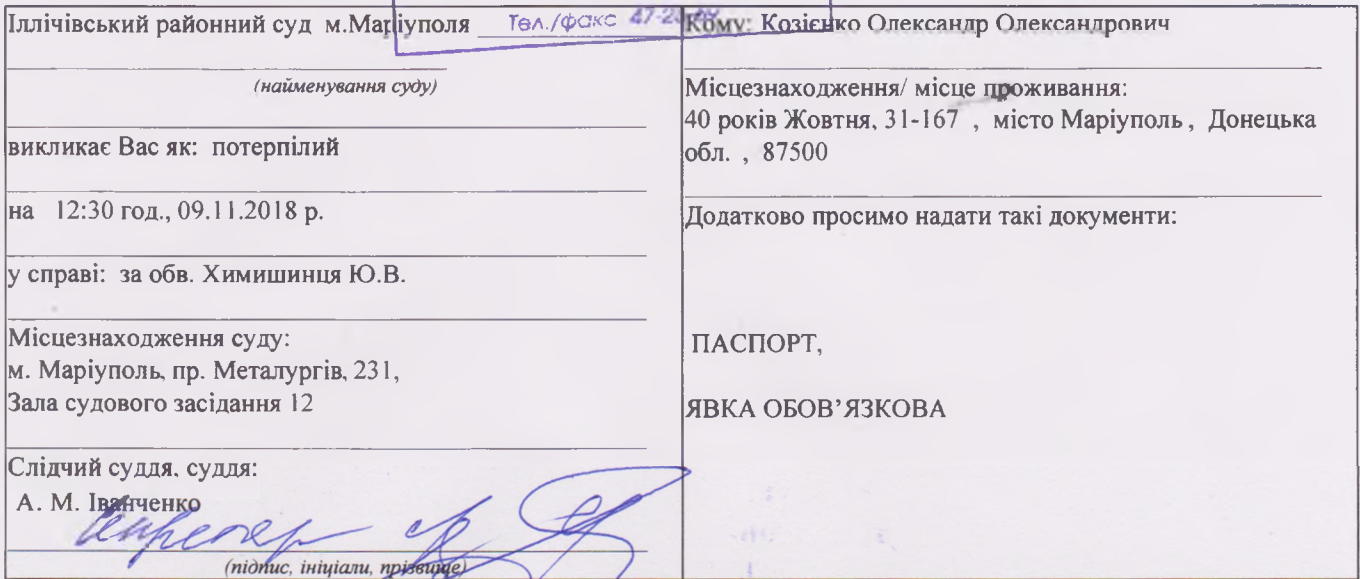 Іллічівський районний суд м.Маріуполя
Тел./факс
(найменування суду)
викликає Вас як: потерпілий
на 12:30 год., 09.11.2018 р.
у справі: за обв. Химишинця Ю.В.
Місцезнаходження суду:
м. Маріуполь, пр. Металургів, 231,
Зала судового засідання 12
Слідчий суддя, суддя:
А. М. Іванченко
(підпис, ініціали, прізвище)
Кому: Козієнко Олександр Олександрович
Місцезнаходження/ місце проживання:
40 років Жовтня, 31-167 , місто Маріуполь , Донецька
обл. , 87500
Додатково просимо надати такі документи:
ПАСПОРТ,
ЯВКА ОБОВ’ЯЗКОВА